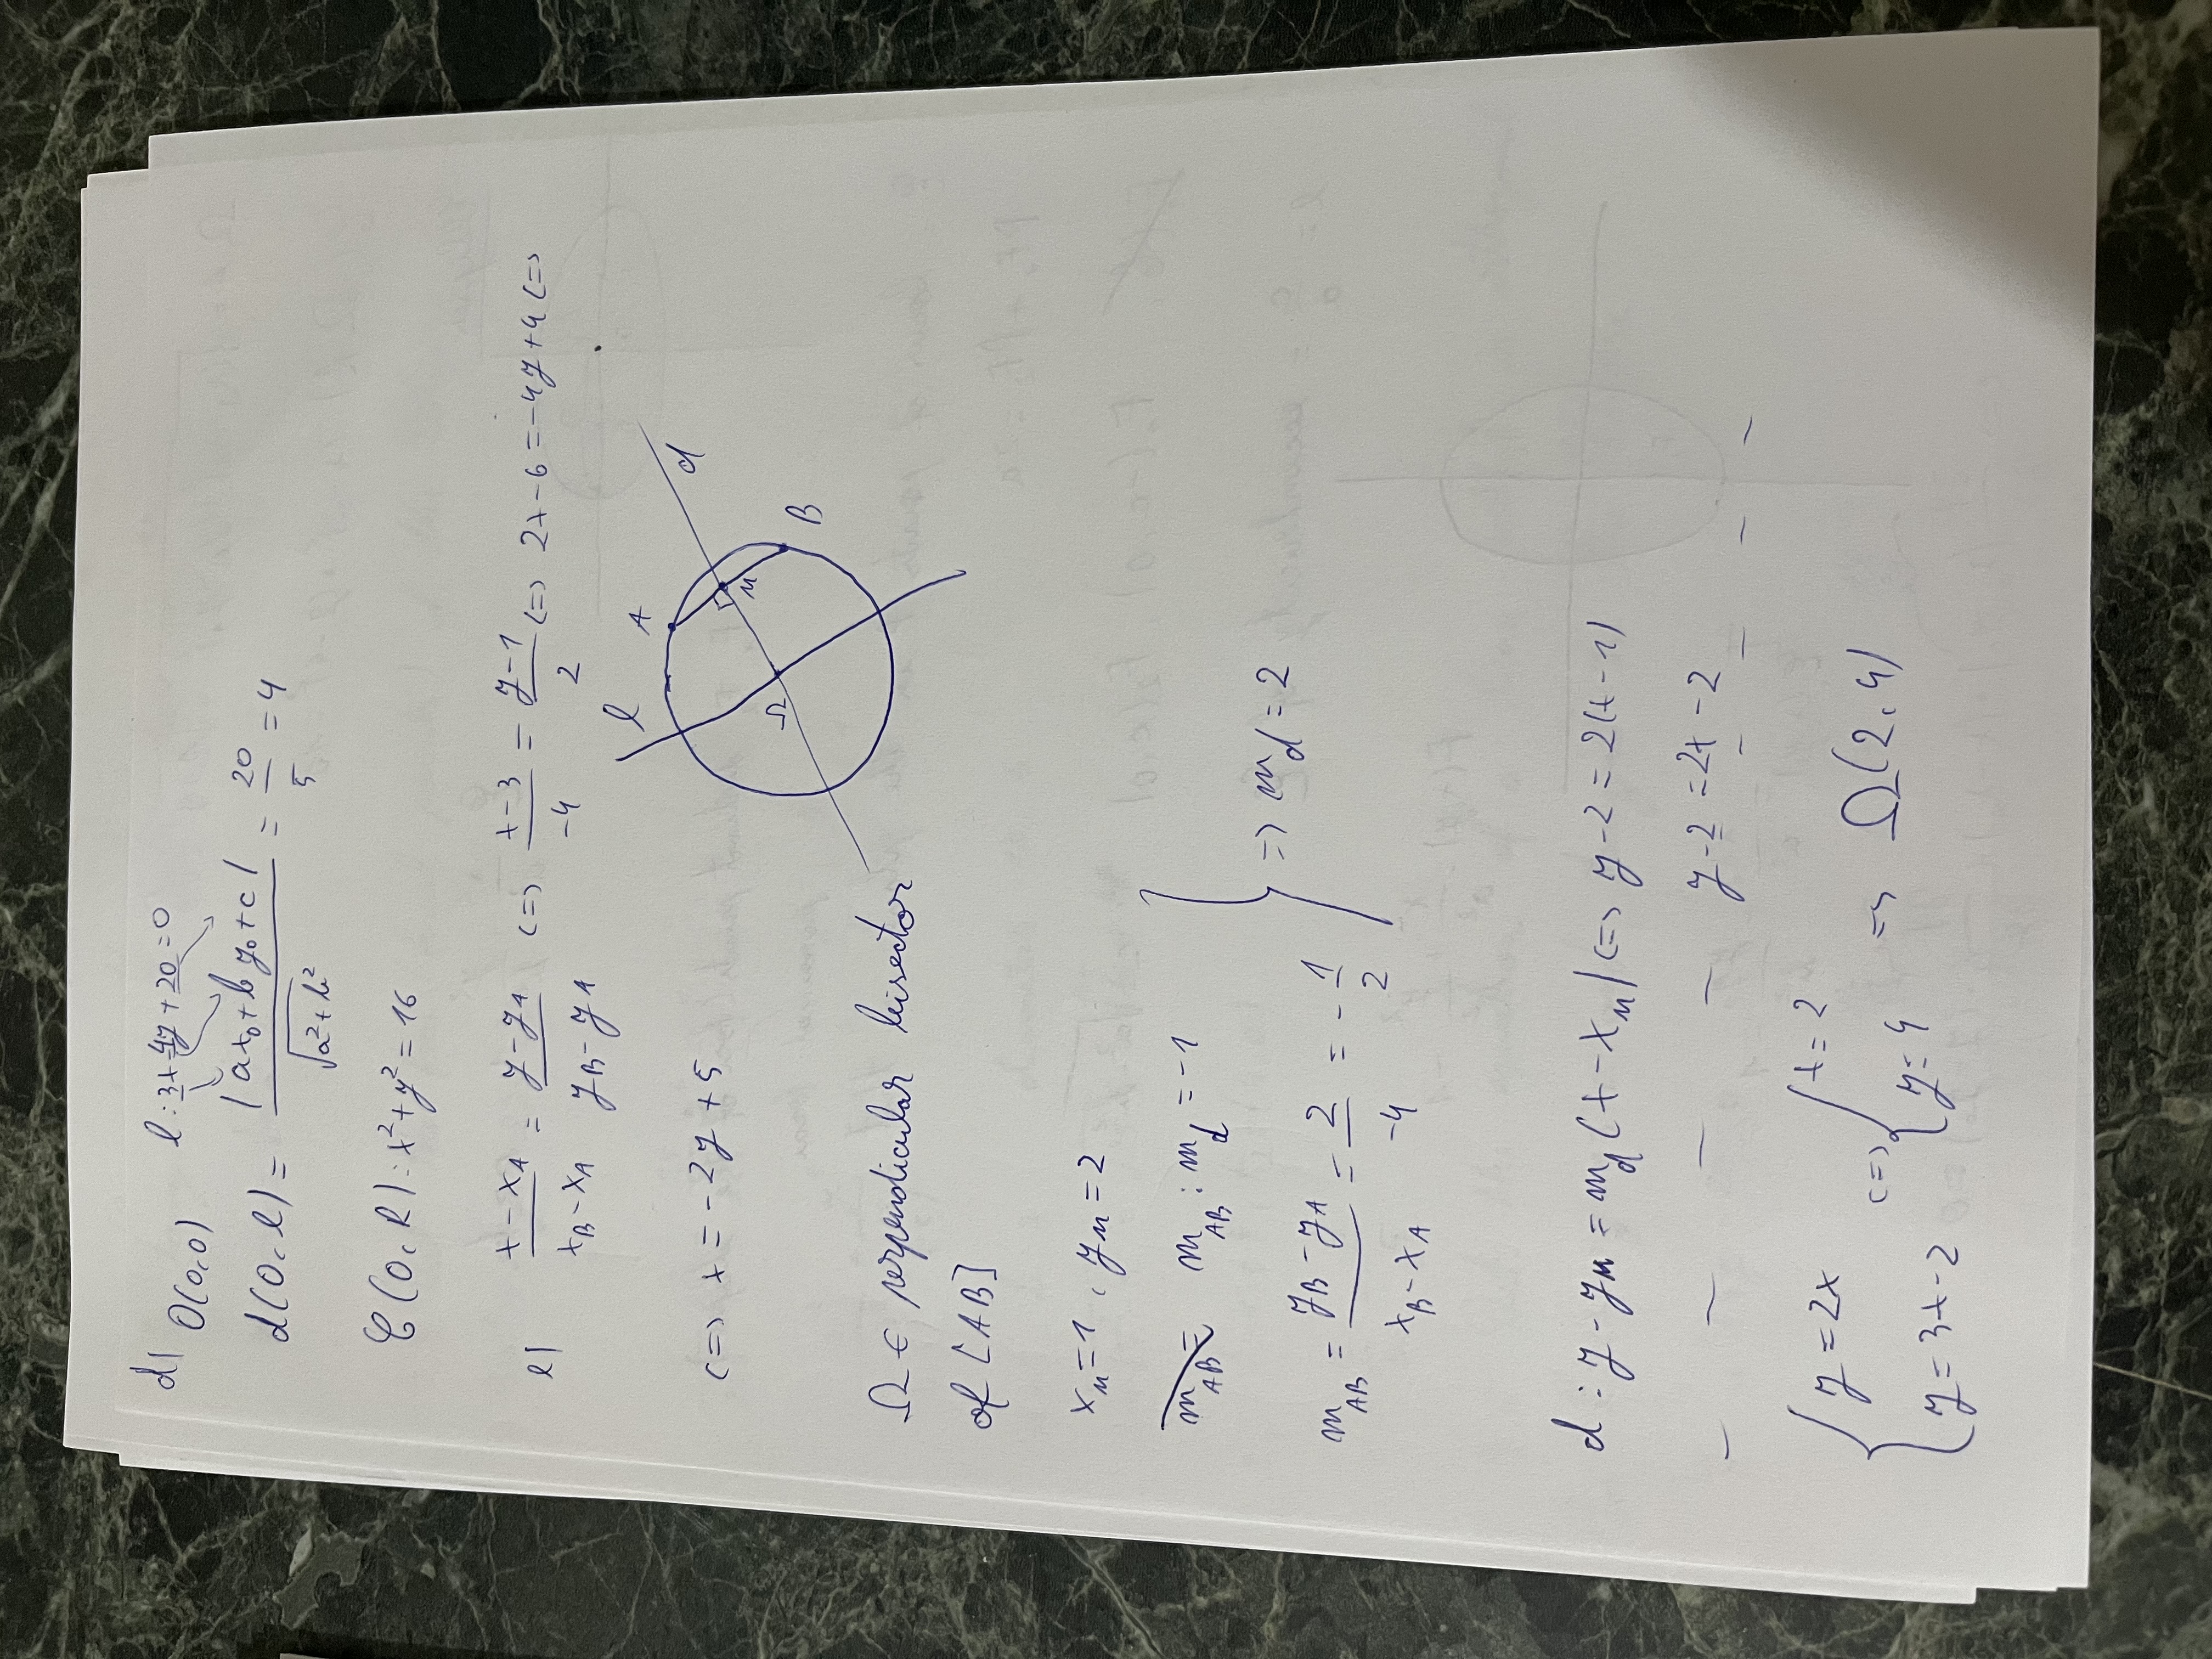 d) O(0,0) l: 3x + 4y + 20 = 0
d(O, l) = |ax₀ + by₀ + c| / √(a² + b²) = 20/5 = 4
𝒞(O, R): x² + y² = 16
e) (x - x_A)/(x_B - x_A) = (y - y_A)/(y_B - y_A) <=> (x - 3)/(-4) = (y - 1)/2 <=> 2x - 6 = -4y + 4 <=>
<=> x = -2y + 5
l A d
M
Ω B
Ω ∈ perpendicular bisector
of [AB]
x_M = 1, y_M = 2
m_AB = m_AB : m_d = -1
=> m_d = 2
m_AB = (y_B - y_A)/(x_B - x_A) = 2/(-4) = -1/2
d: y - y_M = m_d (x - x_M) <=> y - 2 = 2(x - 1)
y - 2 = 2x - 2
{ y = 2x <=> { x = 2 => Ω(2, 4)
y = 3x - 2 y = 4